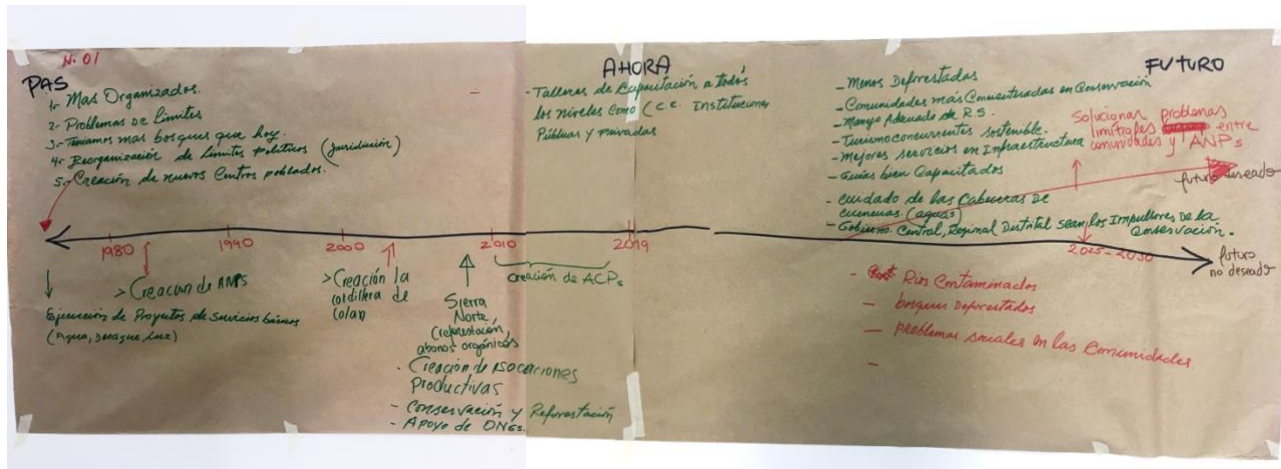 N. 01
PAS
1- Mas Organizados.
2- Problemas de Limites
3- Teniamos mas bosques que hoy.
4- Reorganización de Limites Politicos (Juridiación)
5- Creación de nuevos Centros poblados.
AHORA
- Talleres de Capacitación a todos
los niveles como (C.C. Instituciones
Públicas y privadas
FUTURO
- Menos Deforestadas
- Comunidades más Concienteradas en Conservación
- Manejo Adecuado de R.S.
- Turismo concurrentes sostenible.
- Mejores servicios en Infraestructura
- Guias bien Capacitados
- cuidado de las Cabeceras de
cuencas (aguas)
- Gobierno Central, Regional Distrital sean los Impulsores de la
Conservación.
Solucionar problemas
limítrofes entre
comunidades y ANPs
futuro deseado
1980
1990
2000
2010
2019
2025-2030
futuro
no deseado
Ejecución de Proyectos de Servicios básicos
(Agua, Desague, Luz)
> Creación de ANPs
> Creación la
cordillera de
Colan
Sierra
Norte
(reforestación,
abonos orgánicos
- Creación de asociaciones
productivas
- Conservación y Reforestación
- Apoyo de ONGs.
creación de ACPs
- Rios Contaminados
- bosques Deforestados
- problemas sociales en las Comunidades.
-